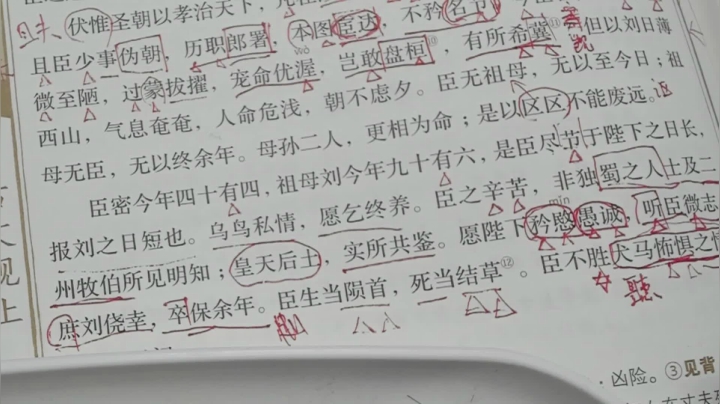 伏惟圣朝以孝治天下，凡
且臣少事伪朝，历职郎署，本图宦达，不矜名节
但以刘日薄
微至陋，过蒙拔擢，宠命优渥，岂敢盘桓⑩，有所希冀
西山，气息奄奄，人命危浅，朝不虑夕。臣无祖母，无以至今日；祖
母无臣，无以终余年。母孙二人，更相为命；是以区区不能废远。
臣密今年四十有四，祖母刘今年九十有六，是臣尽节于陛下之日长，
报刘之日短也。乌鸟私情，愿乞终养。臣之辛苦，非独蜀之人士及二
州牧伯所见明知；皇天后土，实所共鉴。愿陛下矜愍愚诚，听臣微志
庶刘侥幸，卒保余年。臣生当陨首，死当结草⑫。臣不胜犬马怖惧之情
min
聽
凶险。③见背